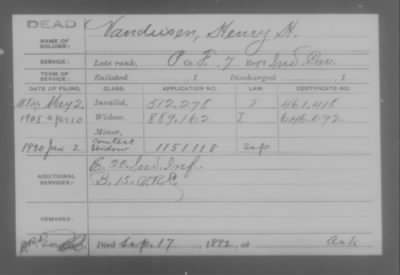 DEAD
NAME OF SOLDIER: Vandusen, Henry H.
SERVICE: Late rank, P Co. F, 7 Reg't Ind Cav.
TERM OF SERVICE: Enlisted , 1 Discharged , 1
DATE OF FILING. CLASS. APPLICATION NO. LAW. CERTIFICATE NO.
1884 May 2 Invalid, 512,278 461,418
1908 Apr 10 Widow, 889,162 I 646,092
Minor,
1920 Jan 2 Contest Widow 1151118
ADDITIONAL SERVICES: E. 20. Ind. Inf.
B. 15. V.R.C.
REMARKS:
Died Sep. 17, 1892, at Ark